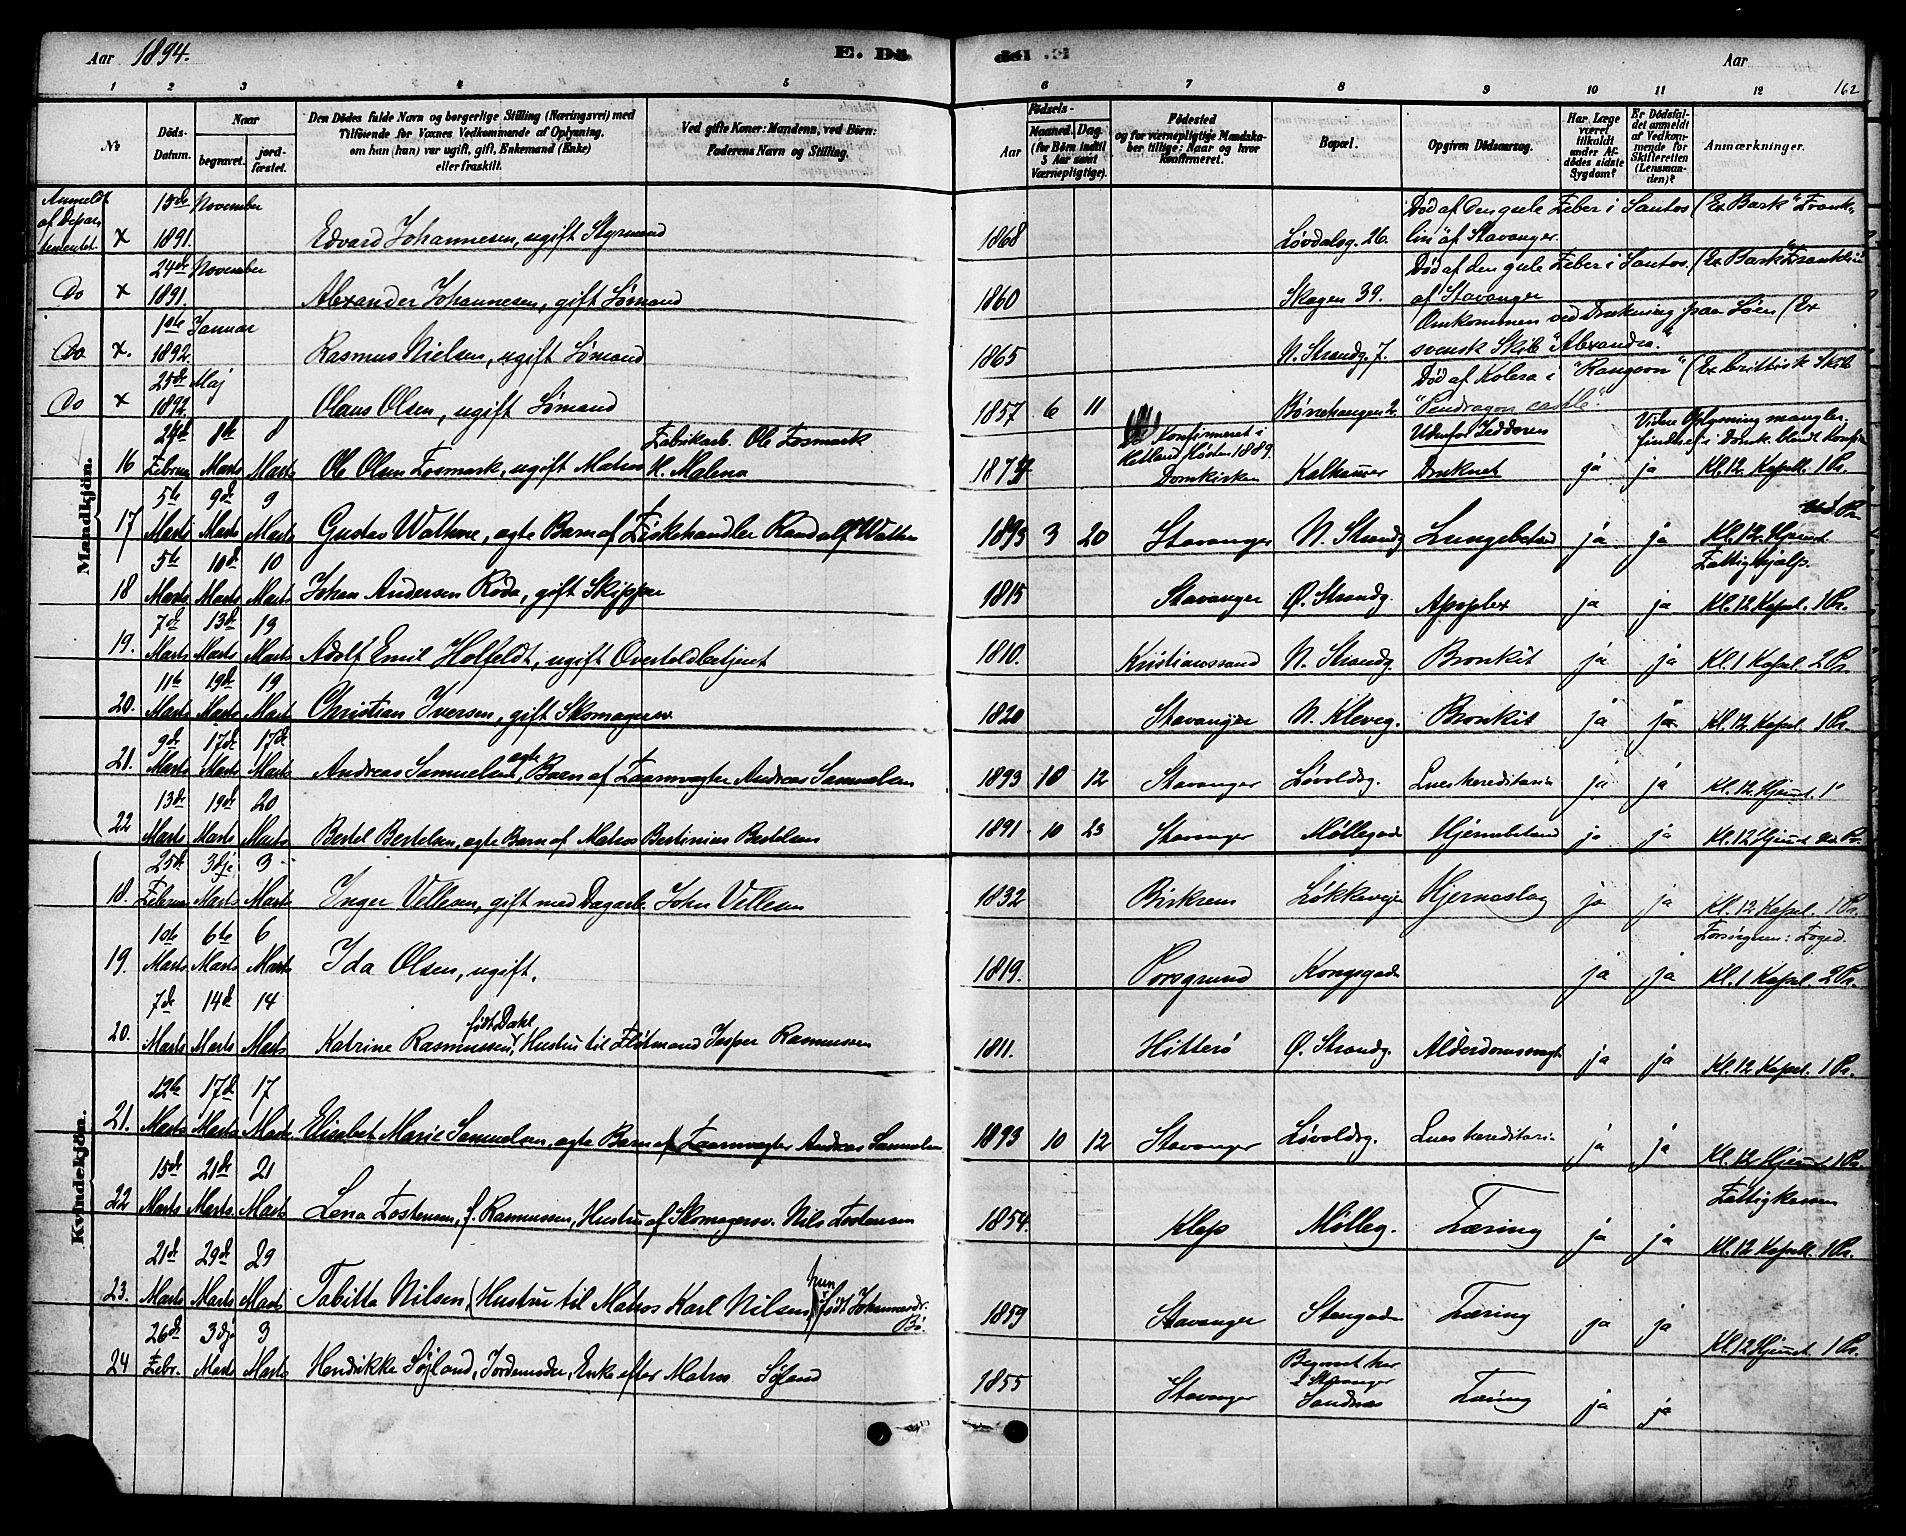 Aar 1894. E. Dö del .E Aar
162
1 2 3 4 5 6 7 8 9 10 11 12
No
Döds-Datum.
Naar
begravet.
jordfæstet.
Den Dödes fulde Navn og borgerlige Stilling (Næringsvei) med Tilföiende for Voxnes Vedkommende af Oplysning, om han (hun) var ugift, gift, Enkemand (Enke) eller fraskilt.
Ved gifte Koner: Mandens, ved Börn: Faderens Navn og Stilling.
Födsels-
Aar
Maaned. Dag.
(for Börn indtil 5 Aar samt Værnepligtige).
Födested og for værnepligtige Mandskaber tillige: Naar og hvor Konfirmeret.
Bopæl.
Opgiven Dödsaarsag.
Har Læge været tilkaldt under Afdödes sidste Sygdom?
Er Dödsfaldet anmeldt af Vedkommende for Skifteretten (Lensmanden)?
Anmærkninger.
Mandkjön.
Kvindekjön.
Anmeldt af Departementet x 15de November 1891. Edvard Johannesen, ugift Styrmand 1868 Løvdalsg. 26. Død af den gule Feber i Santos (Ex Bark "Franklin" af Stavanger.
Do x 24de November 1891. Alexander Johannesen, gift Sømand 1860 Skagen 39. Død af den gule Feber i Santos. (Ex Bark "Franklin" af Stavanger
Do x. 1ste Januar 1892. Rasmus Nielsen, ugift Sømand 1865 N. Strandg. 7. Omkommen ved Drukning paa Søen (Ex svensk Skib "Alexandra."
Do x 25de Maj 1892. Olaus Olsen, ugift Sømand 1857 6 11 Børnehaugen 2. Død af Kolera i "Rangoon" (Ex brittisk Skib "Pendragon castle".
16 24de Februar 8de Marts 8 Marts Ole Olsen Fosmark, ugift Matros Fabrikarb. Ole Fosmark M. Malena 1874 Konfirmeret i Hetland Høsten 1889. Domkirken Kalhammer Udenfor Jæderen Druknet ja ja Videre Oplysning mangler. Kl. 12. Kapell. 1 Pr.
17 5te Marts 9de Marts 9 Marts Gustav Wathne, ægte Barn af Fiskehandler Randolf Wathne 1893 3 20 Stavanger N. Strandg Lungebetæd ja ja Kl. 12. Hjemmet
18 5te Marts 10de Marts 10 Marts Johan Andersen Røda, gift Skipper 1815 Stavanger Ø. Strandg. Apoplex ja ja Fattighjælp. Kl. 12 Kapel. 1 Pr.
19. 7de Marts 13de Marts 13 Marts Adolf Emil Holfeldt, ugift Overtoldbetjent 1810. Kristianssand N. Strandg. Bronkit ja ja Kl. 1 Kapel. 2 Pr.
20. 11te Marts 19de Marts 19 Marts Christian Iversen, gift Skomagersv. 1820 Stavanger N. Kleveg. Bronkit ja ja Kl. 12 Kapel. 1 Pr.
21. 9de Marts 17de Marts 17de Marts Andreas Samuelsen, ægte Barn af Taarnvægter Andreas Samuelsen 1893 10 12 Stavanger Løvoldsg. Lues hereditaria ja ja Kl. 12. Hjemmet. 1
22 13de Marts 19de Marts 20 Marts Bertel Bertelsen, ægte Barn af Matros Bertinius Bertelsen 1891 10 23 Stavanger Møllegad Hjernebetænd ja ja Kl. 12 Hjemmet ud. Pr.
18. 25de Februar 3dje Marts 3 Marts Inger Vellesen, gift med Dagarb. John Vellesen 1832 Birkrem Løkkevejen Hjerneslag ja ja Kl. 12 Kapel. 1 Pr.
19. 10de Marts 6te Marts 6 Marts Ida Olsen, ugift. 1819. Porsgrund Kongsgade ja ja Kl. 1 Kapel. 2 Pr.
20. 7de Marts 14de Marts 14 Marts Katrine Rasmussen, født Dahl Hustru til Flötmand Jesper Rasmussen 1811. Hitterö Ø. Strandg. Alderdomssvagh ja ja Kl. 12 Kapel. 1 Pr.
21. 12te Marts 17de Marts 17 Marts Elisabet Marie Samuelsen, ægte Barn af Taarnvægter Andreas Samuelsen 1893 10 12 Stavanger Løvoldsg. Lues hereditaria ja ja Kl. 12 Hjemmet 1 Pr.
22 15de Marts 21de Marts 21 Marts Lena Tostensen, f. Rasmussen, Hustru af Skomagersv. Nils Tostensen 1854. Klep Mølleg. Tæring ja ja Fattigkassen Kl. 12 Kapell. 1 Pr.
23. 21de Marts 29de Marts 29 Marts Tabitta Nilsen, (Hustru til Matros Karl Nilsen, hun født Johannesdr. Bø. 1859 Stavanger Stengade Tæring ja ja Kl. 12 Hjemmet. 1 Pr.
24 26de Febr. 3dje Marts 3 Marts Hendrikke Søyland, Jordemoder, Enke efter Matros Söland 1855 Stavanger Begravet her i Stavanger Sandnæs Tæring ja ja